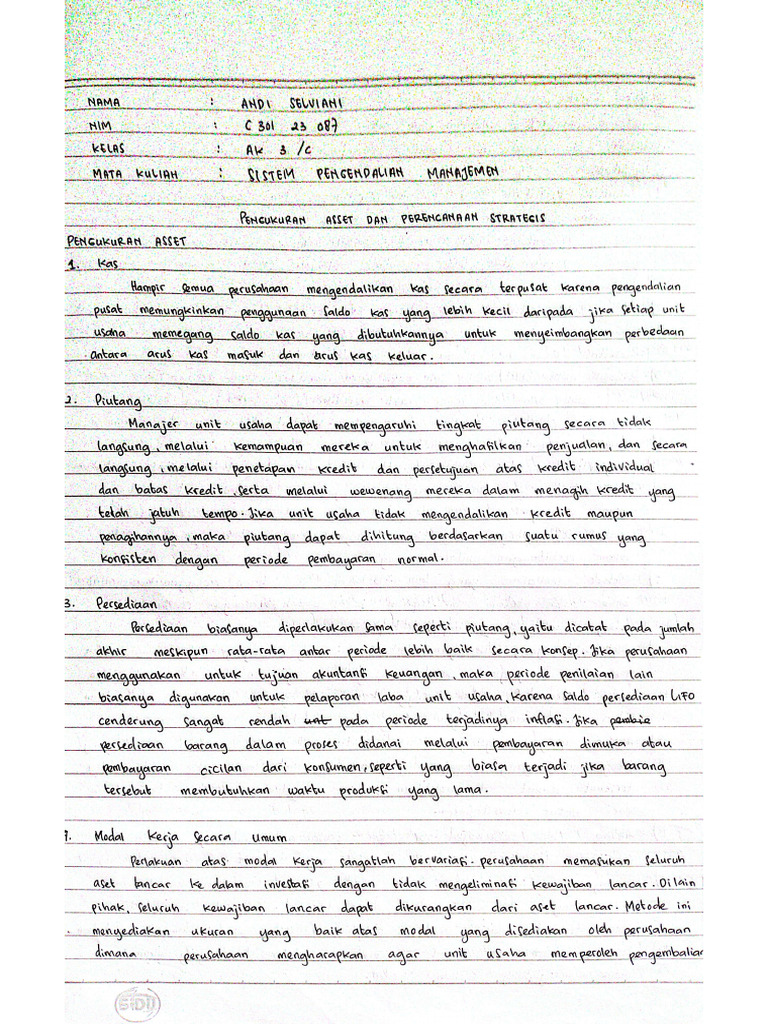 NAMA : ANDI SELVIANI
NIM : C 301 23 087
KELAS : AK 3 /C
MATA KULIAH : SISTEM PENGENDALIAN MANAJEMEN
PENGUKURAN ASSET DAN PERENCANAAN STRATEGIS
PENGUKURAN ASSET
1. Kas
Hampir semua perusahaan mengendalikan kas secara terpusat karena pengendalian
pusat memungkinkan penggunaan saldo kas yang lebih kecil daripada jika setiap unit
usaha memegang saldo kas yang dibutuhkannya untuk menyeimbangkan perbedaan
antara arus kas masuk dan arus kas keluar.
2. Piutang
Manajer unit usaha dapat mempengaruhi tingkat piutang secara tidak
langsung, melalui kemampuan mereka untuk menghasilkan penjualan, dan secara
langsung, melalui penetapan kredit dan persetujuan atas kredit individual
dan batas kredit, serta melalui wewenang mereka dalam menagih kredit yang
telah jatuh tempo. Jika unit usaha tidak mengendalikan kredit maupun
penagihannya, maka piutang dapat dihitung berdasarkan suatu rumus yang
konsisten dengan periode pembayaran normal.
3. Persediaan
Persediaan biasanya diperlakukan sama seperti piutang, yaitu dicatat pada jumlah
akhir meskipun rata-rata antar periode lebih baik secara konsep. Jika perusahaan
menggunakan untuk tujuan akuntansi keuangan, maka periode penilaian lain
biasanya digunakan untuk pelaporan laba unit usaha, karena saldo persediaan LIFO
cenderung sangat rendah unt pada periode terjadinya inflasi. Jika pembia
persediaan barang dalam proses didanai melalui pembayaran dimuka atau
pembayaran cicilan dari konsumen, seperti yang biasa terjadi jika barang
tersebut membutuhkan waktu produksi yang lama.
Modal Kerja Secara Umum
Perlakuan atas modal kerja sangatlah bervariasi. perusahaan memasukan seluruh
aset lancar ke dalam investasi dengan tidak mengeliminasi kewajiban lancar. Di lain
pihak, seluruh kewajiban lancar dapat dikurangkan dari aset lancar. Metode ini
menyediakan ukuran yang baik atas modal yang disediakan oleh perusahaan
dimana perusahaan mengharapkan agar unit usaha memperoleh pengembalian
SIDU